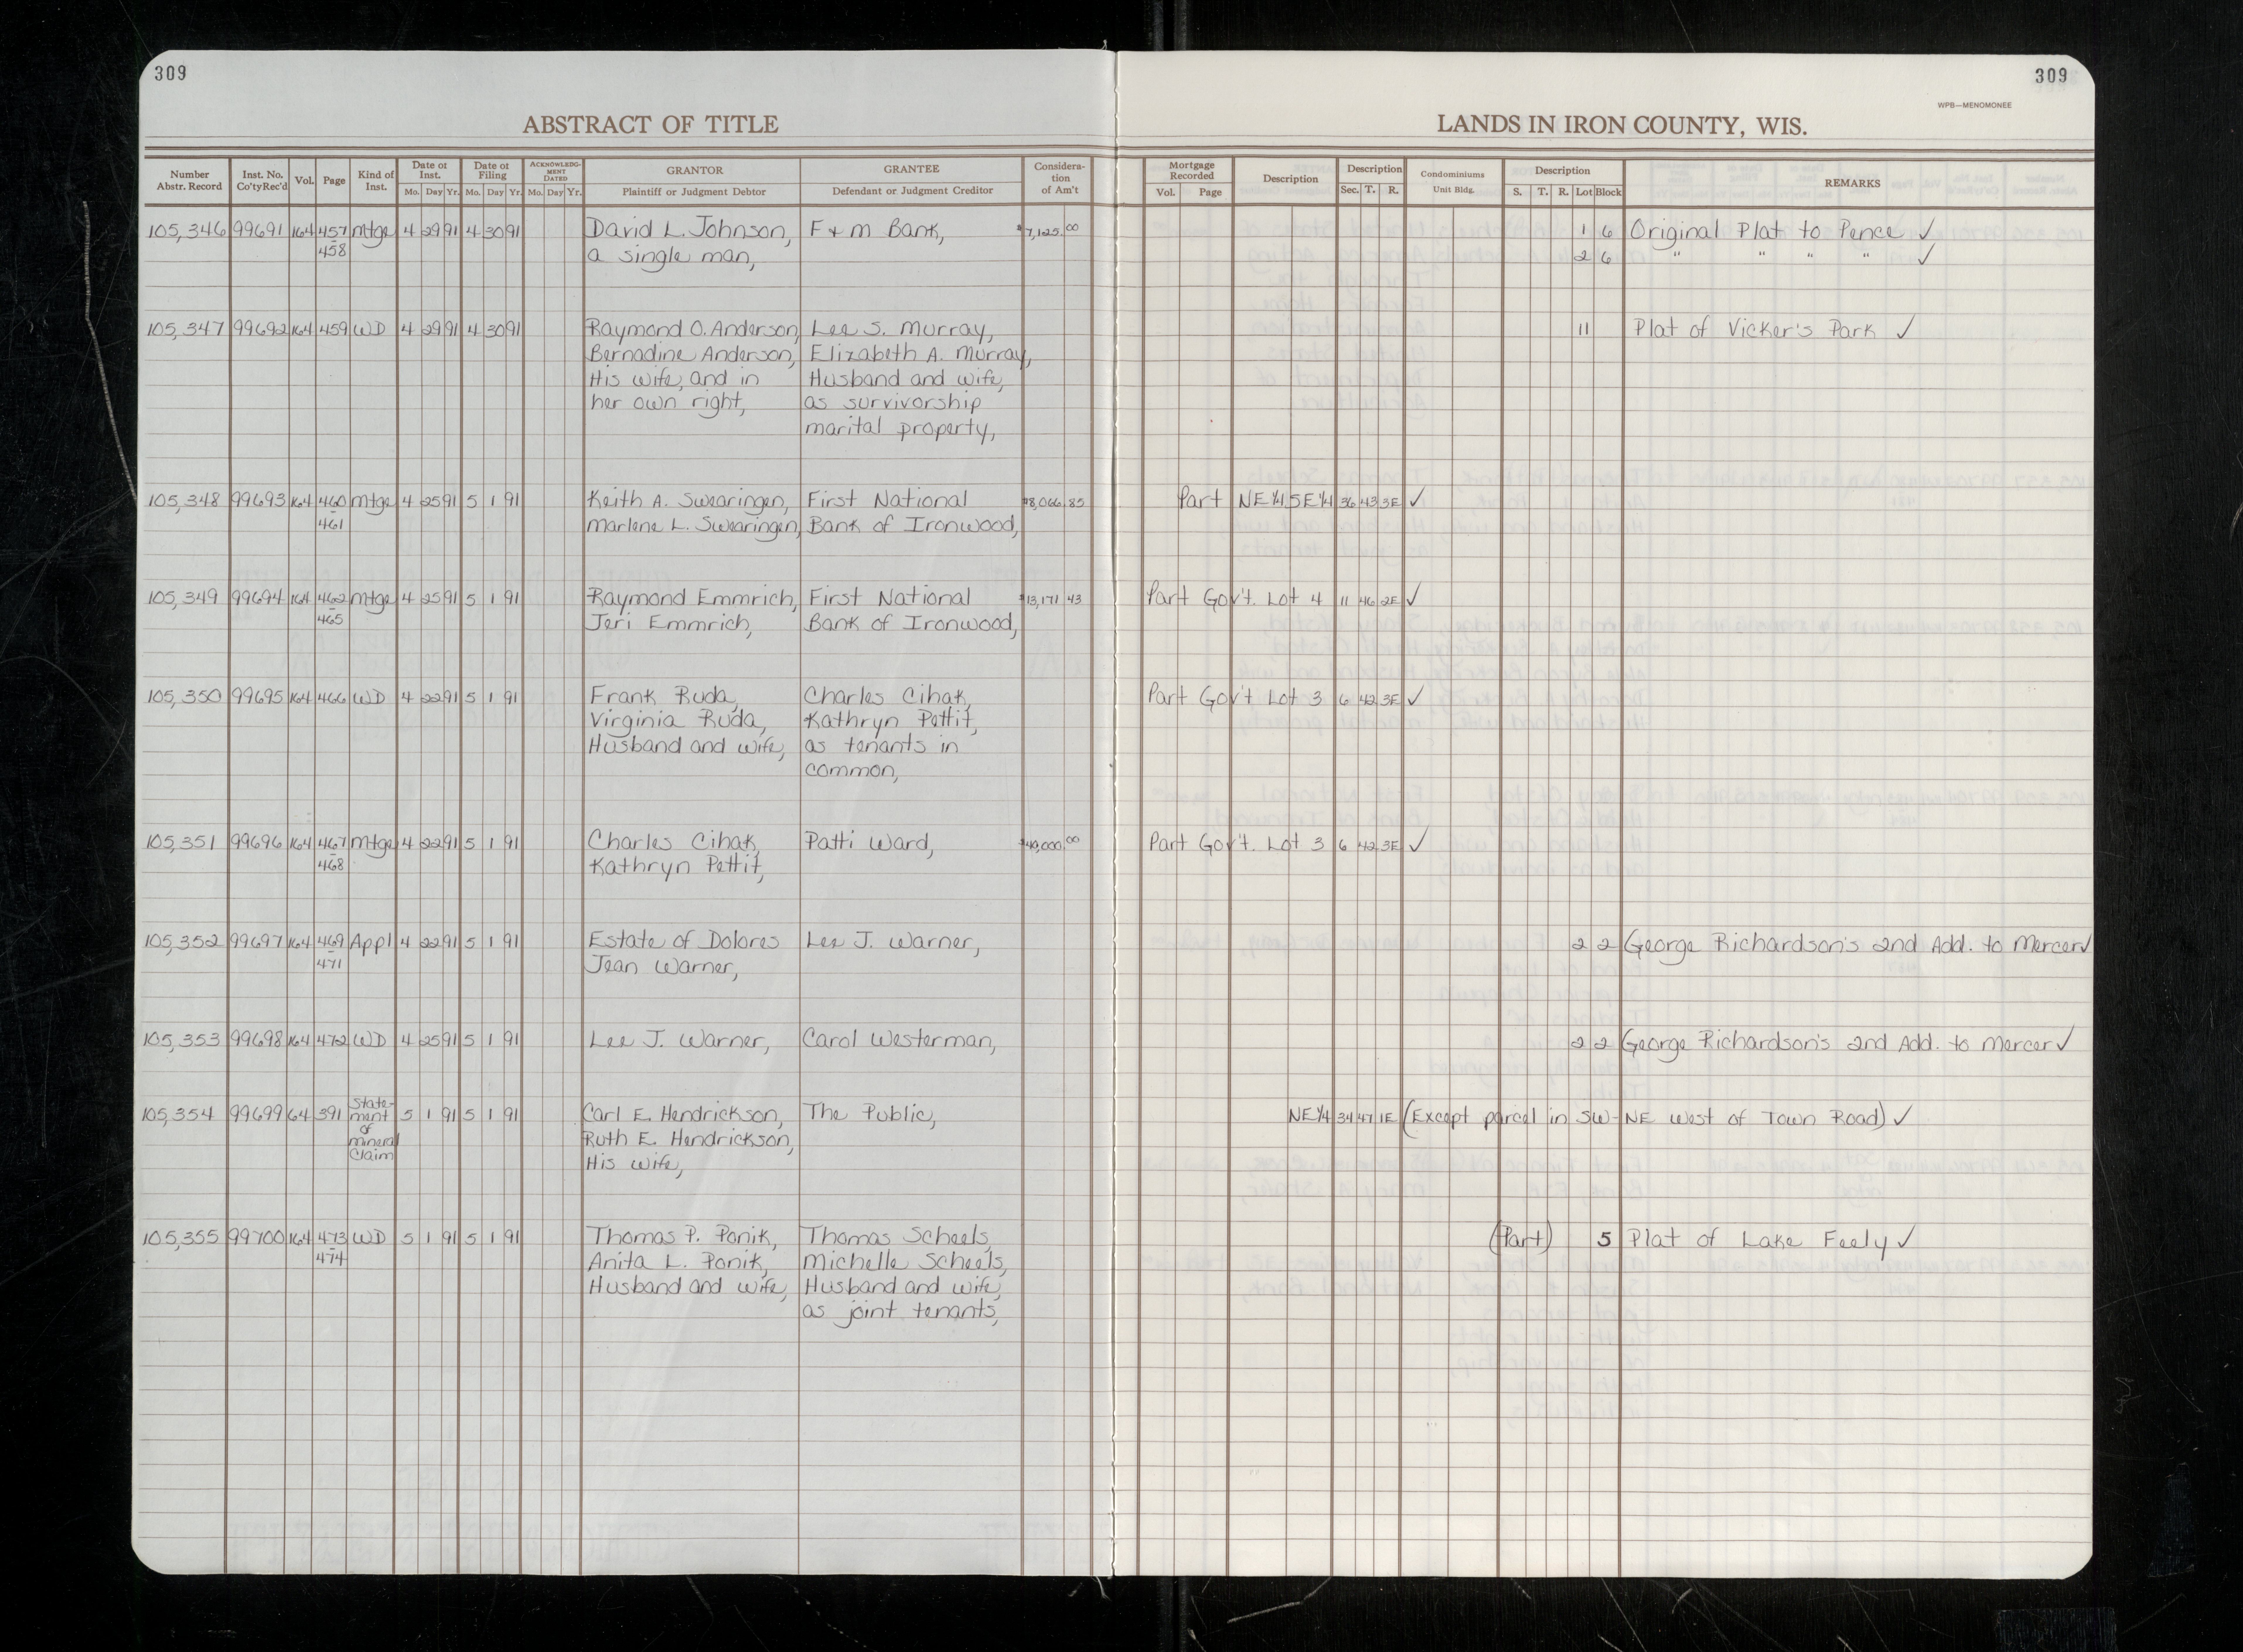 309
309
WPB—MENOMONEE
ABSTRACT OF TITLE LANDS IN IRON COUNTY, WIS.
Number Abstr. Record Inst. No. Co'ty Rec'd Vol. Page Kind of Inst. Date of Inst. Mo. Day Yr. Date of Filing Mo. Day Yr. ACKNOWLEDGMENT DATED Mo. Day Yr. GRANTOR Plaintiff or Judgment Debtor GRANTEE Defendant or Judgment Creditor Consideration of Am't Mortgage Recorded Vol. Page Description Description Sec. T. R. Condominiums Unit Bldg. Description S. T. R. Lot Block REMARKS
105,346 99691 164 457 Mtge 4 29 91 4 30 91 David L. Johnson, F & M Bank, $7,125.00 1 6 Original Plat to Pence ✓
458 a single man, 2 6 " " " " ✓
105,347 99692 164 459 WD 4 29 91 4 30 91 Raymond O. Anderson, Lee S. Murray, 11 Plat of Vicker's Park ✓
Bernadine Anderson, Elizabeth A. Murray,
His wife, and in Husband and wife,
her own right, as survivorship
marital property,
105,348 99693 164 460 Mtge 4 25 91 5 1 91 Keith A. Swearingen, First National $8,066.85 Part NE¼ SE¼ 36 43 3E ✓
461 Marlene L. Swearingen, Bank of Ironwood,
105,349 99694 164 462 Mtge 4 25 91 5 1 91 Raymond Emmrich, First National $13,171 43 Part Gov't. Lot 4 11 46 2E ✓
465 Jeri Emmrich, Bank of Ironwood,
105,350 99695 164 466 WD 4 22 91 5 1 91 Frank Ruda, Charles Cihak, Part Gov't. Lot 3 6 42 3E ✓
Virginia Ruda, Kathryn Pettit,
Husband and wife, as tenants in
common,
105,351 99696 164 467 Mtge 4 22 91 5 1 91 Charles Cihak, Patti Ward, $40,000.00 Part Gov't. Lot 3 6 42 3E ✓
468 Kathryn Pettit,
105,352 99697 164 469 Appl 4 22 91 5 1 91 Estate of Dolores Lee J. Warner, 2 2 George Richardson's 2nd Add. to Mercer ✓
471 Jean Warner,
105,353 99698 164 472 WD 4 25 91 5 1 91 Lee J. Warner, Carol Westerman, 2 2 George Richardson's 2nd Add. to Mercer ✓
105,354 99699 64 391 Statement of mineral Claim 5 1 91 5 1 91 Carl E. Hendrickson, The Public, NE¼ 34 47 1E (Except parcel in SW-NE west of Town Road) ✓
Ruth E. Hendrickson,
His wife,
105,355 99700 164 473 WD 5 1 91 5 1 91 Thomas P. Ponik, Thomas Scheels, (Part) 5 Plat of Lake Feely ✓
474 Anita L. Ponik, Michelle Scheels,
Husband and wife, Husband and wife,
as joint tenants,